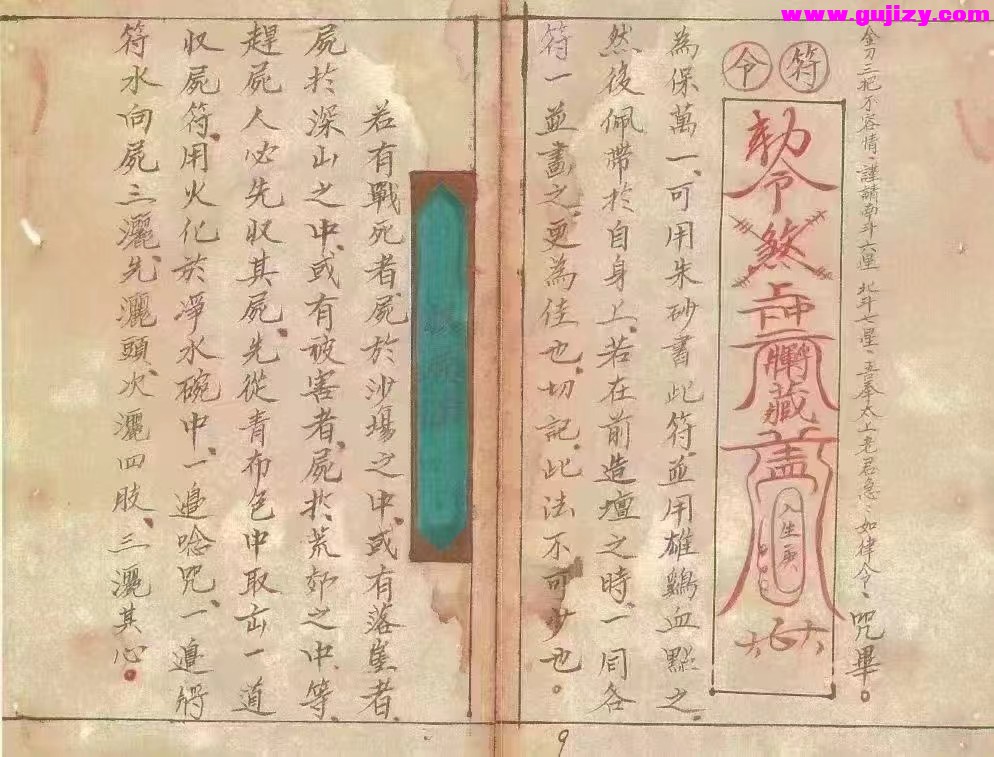 www.gujizy.com
金刀三把不容情、謹請南斗六星、北斗七星、吾奉太上老君急、如律令、咒畢。
符令
勅令煞
罡
藏
蓋
入生
為保萬一、可用朱砂書此符、並用雄鷄血點之、
然後佩帶於自身上、若在前造壇之時、一同各
符一並畫之、更為佳也、切記、此法不可少也。
若有戰死者、屍於沙場之中、或有落崖者、
屍於深山之中、或有被害者、屍於荒郊之中、等、
趕屍人必先收其屍、先從青布包中取出一道
収屍符、用火化於凈水碗中、一邉唸咒、一邉將
符水向屍三灑、先灑頭、次灑四肢、三灑其心。
9